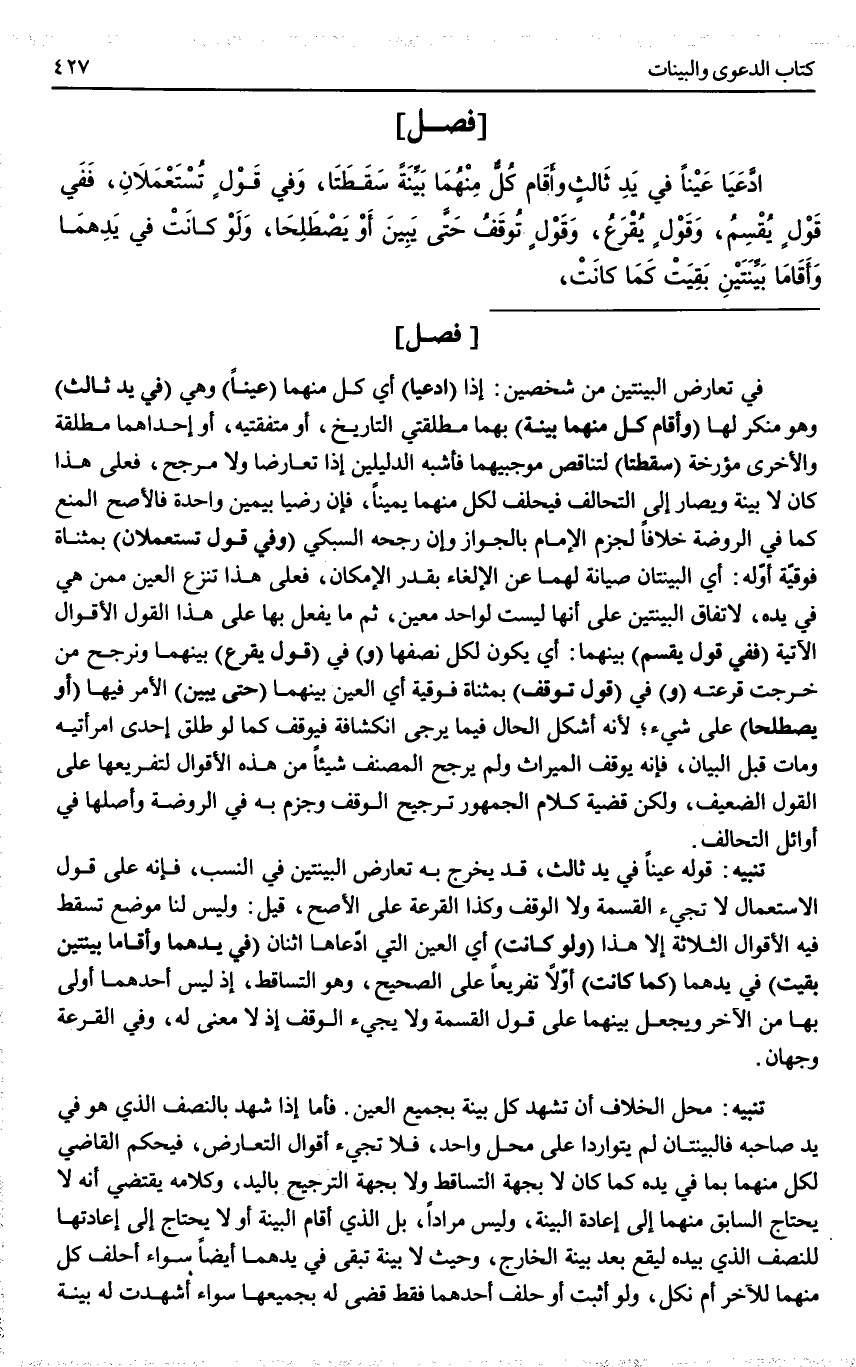 كتاب الدعوى والبينات ٤٢٧
[فصـل]
ادَّعَيَا عَيْناً في يَدِ ثَالثٍ وأَقَام كُلٌّ مِنْهُمَا بَيِّنَةً سَقَـطَتَا، وَفي قَـوْلٍ تُسْتَعْمَلَانِ، فَفَي
قَوْلٍ يُقْسِمُ، وَقَوْلٍ يُقْرَعُ، وَقَوْلٍ تُوقَفُ حَتَّى يَبِينَ أَوْ يَصْطَلِحَا، وَلَوْ كـانَتْ في يَدِهِمَـا
وَأَقَامَا بَيِّنَتَيْنِ بَقِيَتْ كَمَا كانَتْ،
[ فصـل]
في تعارض البينتين من شخصين: إذا (ادعيا) أي كـل منهما (عينـاً) وهي (في يد ثـالث)
وهو منكر لهـا (وأقام كـل منهما بينـة) بهما مـطلقتي التاريـخ، أو متفقتيه، أو إحـداهما مـطلقة
والأخرى مؤرخة (سقطتا) لتناقص موجبيهما فأشبه الدليلين إذا تعـارضا ولا مـرجح، فعلى هـذا
كان لا بينة ويصار إلى التحالف فيحلف لكل منهما يميناً، فإن رضيا بيمين واحدة فالأصح المنع
كما في الروضة خلافاً لجزم الإمـام بالجـواز وإن رجحه السبكي (وفي قـول تستعملان) بمثنـاة
فوقيّة أوّله: أي البينتان صيانة لهمـا عن الإلغاء بقـدر الإمكان، فعلى هـذا تنزع العين ممن هي
في يده، لاتفاق البينتين على أنها ليست لواحد معين، ثم ما يفعل بها على هـذا القول الأقـوال
الآتية (ففي قول يقسم) بينهما: أي يكون لكل نصفها (و) في (قـول يقرع) بينهمـا ونرجـح من
خـرجت قرعتـه (و) في (قول تـوقف) بمثناة فـوقية أي العين بينهمـا (حتى يبين) الأمر فيهـا (أو
يصطلحا) على شيء؛ لأنه أشكل الحال فيما يرجى انكشافة فيوقف كما لو طلق إحدى امرأتيـه
ومات قبل البيان، فإنه يوقف الميراث ولم يرجح المصنف شيئاً من هـذه الأقوال لتفـريعها على
القول الضعيف، ولكن قضية كـلام الجمهور تـرجيح الـوقف وجزم بـه في الروضـة وأصلها في
أوائل التحالف.
تنبيه: قوله عيناً في يد ثالث، قـد يخرج بـه تعارض البينتين في النسب، فـإنه على قـول
الاستعمال لا تجيء القسمة ولا الوقف وكذا القرعة على الأصح، قيل: وليس لنا موضع تسقط
فيه الأقوال الثـلاثة إلا هـذا (ولو كـانت) أي العين التي ادّعاهـا اثنان (في يـدهما وأقـاما بينتين
بقيت) في يدهما (كما كانت) أوّلاً تفريعاً على الصحيح، وهو التساقط، إذ ليس أحدهمـا أولى
بهـا من الآخر ويجعـل بينهما على قـول القسمة ولا يجيء الـوقف إذ لا معنى له، وفي القـرعة
وجهان.
تنبيه: محل الخلاف أن تشهد كل بينة بجميع العين. فأما إذا شهد بالنصف الذي هو في
يد صاحبه فالبينتـان لم يتواردا على محـل واحد، فـلا تجيء أقوال التعـارض، فيحكم القاضي
لكل منهما بما في يده كما كان لا بجهة التساقط ولا بجهة الترجيح باليد، وكلامه يقتضي أنه لا
يحتاج السابق منهما إلى إعادة البينة، وليس مراداً، بل الذي أقام البينة أو لا يحتاج إلى إعادتهـا
للنصف الذي بيده ليقع بعد بينة الخارج، وحيث لا بينة تبقى في يدهمـا أيضاً سـواء أحلف كل
منهما للآخر أم نكل، ولو أثبت أو حلف أحدهما فقط قضى له بجميعهـا سواء أُشهـدت له بينـة